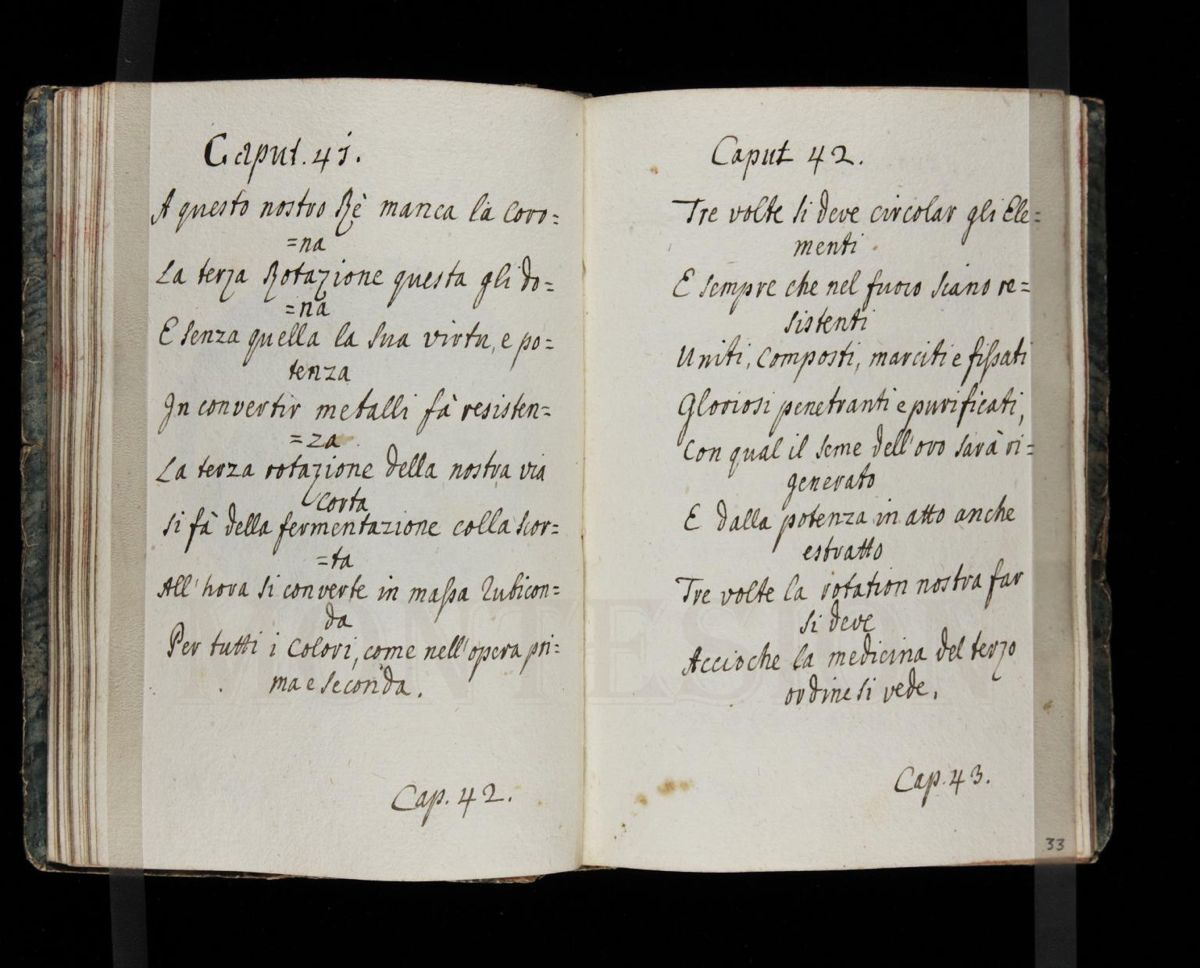 Caput. 41.
A questo nostro Rè manca la Coro=
=na
La terza Rotazione questa gli do=
=na
E senza quella la sua virtu, e po=
tenza
In convertir metalli fà resisten=
=za
La terza rotazione della nostra via
corta
Si fà della fermentazione colla scor=
=ta
All'hora si converte in massa rubicon=
da
Per tutti i Colori, come nell'opera pri=
ma e seconda.
Cap. 42.
Caput 42.
Tre volte si deve circolar gli Ele=
menti
E sempre che nel fuoco siano re=
sistenti
Uniti, Composti, marciti e fissati
Gloriosi penetranti e purificati,
Con qual il seme dell'ovo sarà ri=
generato
E dalla potenza in atto anche
estratto
Tre volte la rotation nostra far
si deve
Accioche la medicina del terzo
ordine si vede.
Cap. 43.
33